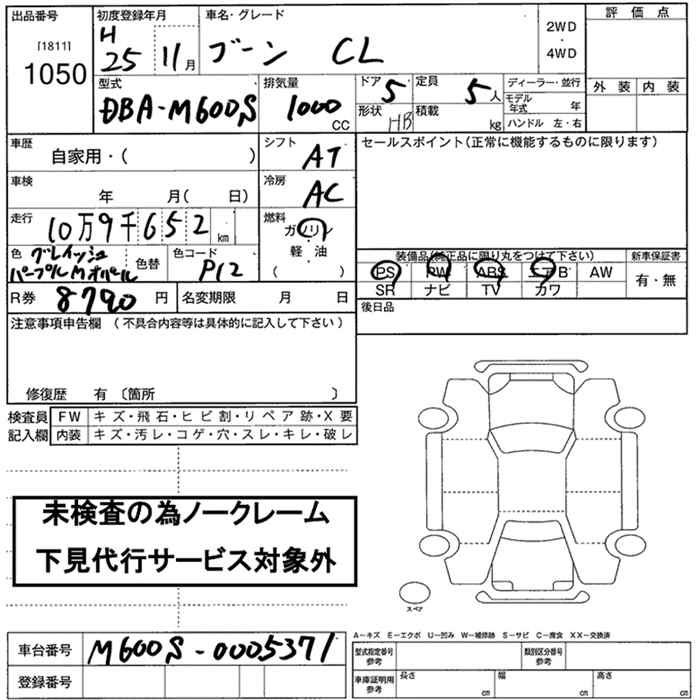 出品番号
[1811]
1050
初度登録年月
H
25 11月
車名・グレード
ブーン CL
2WD
・
4WD
評価点
外装 内装
型式
DBA-M600S
排気量
1000
CC
ドア 5
形状 HB
定員 5人
積載 kg
ディーラー・並行
モデル年式 年
ハンドル 左・右
車歴
自家用・( )
シフト
AT
セールスポイント(正常に機能するものに限ります)
車検
年 月( 日)
冷房
AC
走行
10万9千652 km
燃料
ガソリン
軽・油
( )
色 グレイッシュ
パープルMオパール
色替
色コード
P12
装備品(純正品に限り丸をつけて下さい)
PS PW ABS エアB AW
SR ナビ TV カワ
新車保証書
有・無
R券 8790 円
名変期限 月 日
後日品
注意事項申告欄 (不具合内容等は具体的に記入して下さい)
修復歴 有 〔箇所 〕
検査員
記入欄
FW キズ・飛石・ヒビ割・リペア跡・X要
内装 キズ・汚レ・コゲ・穴・スレ・キレ・破レ
未検査の為ノークレーム
下見代行サービス対象外
スペア
A-キズ E-エクボ U-凹み W-補修跡 S-サビ C-腐食 XX-交換済
車台番号 M600S-0005371
登録番号
型式指定番号
参考
類別区分番号
参考
車庫証明用
参考
長さ cm
幅 cm
高さ cm